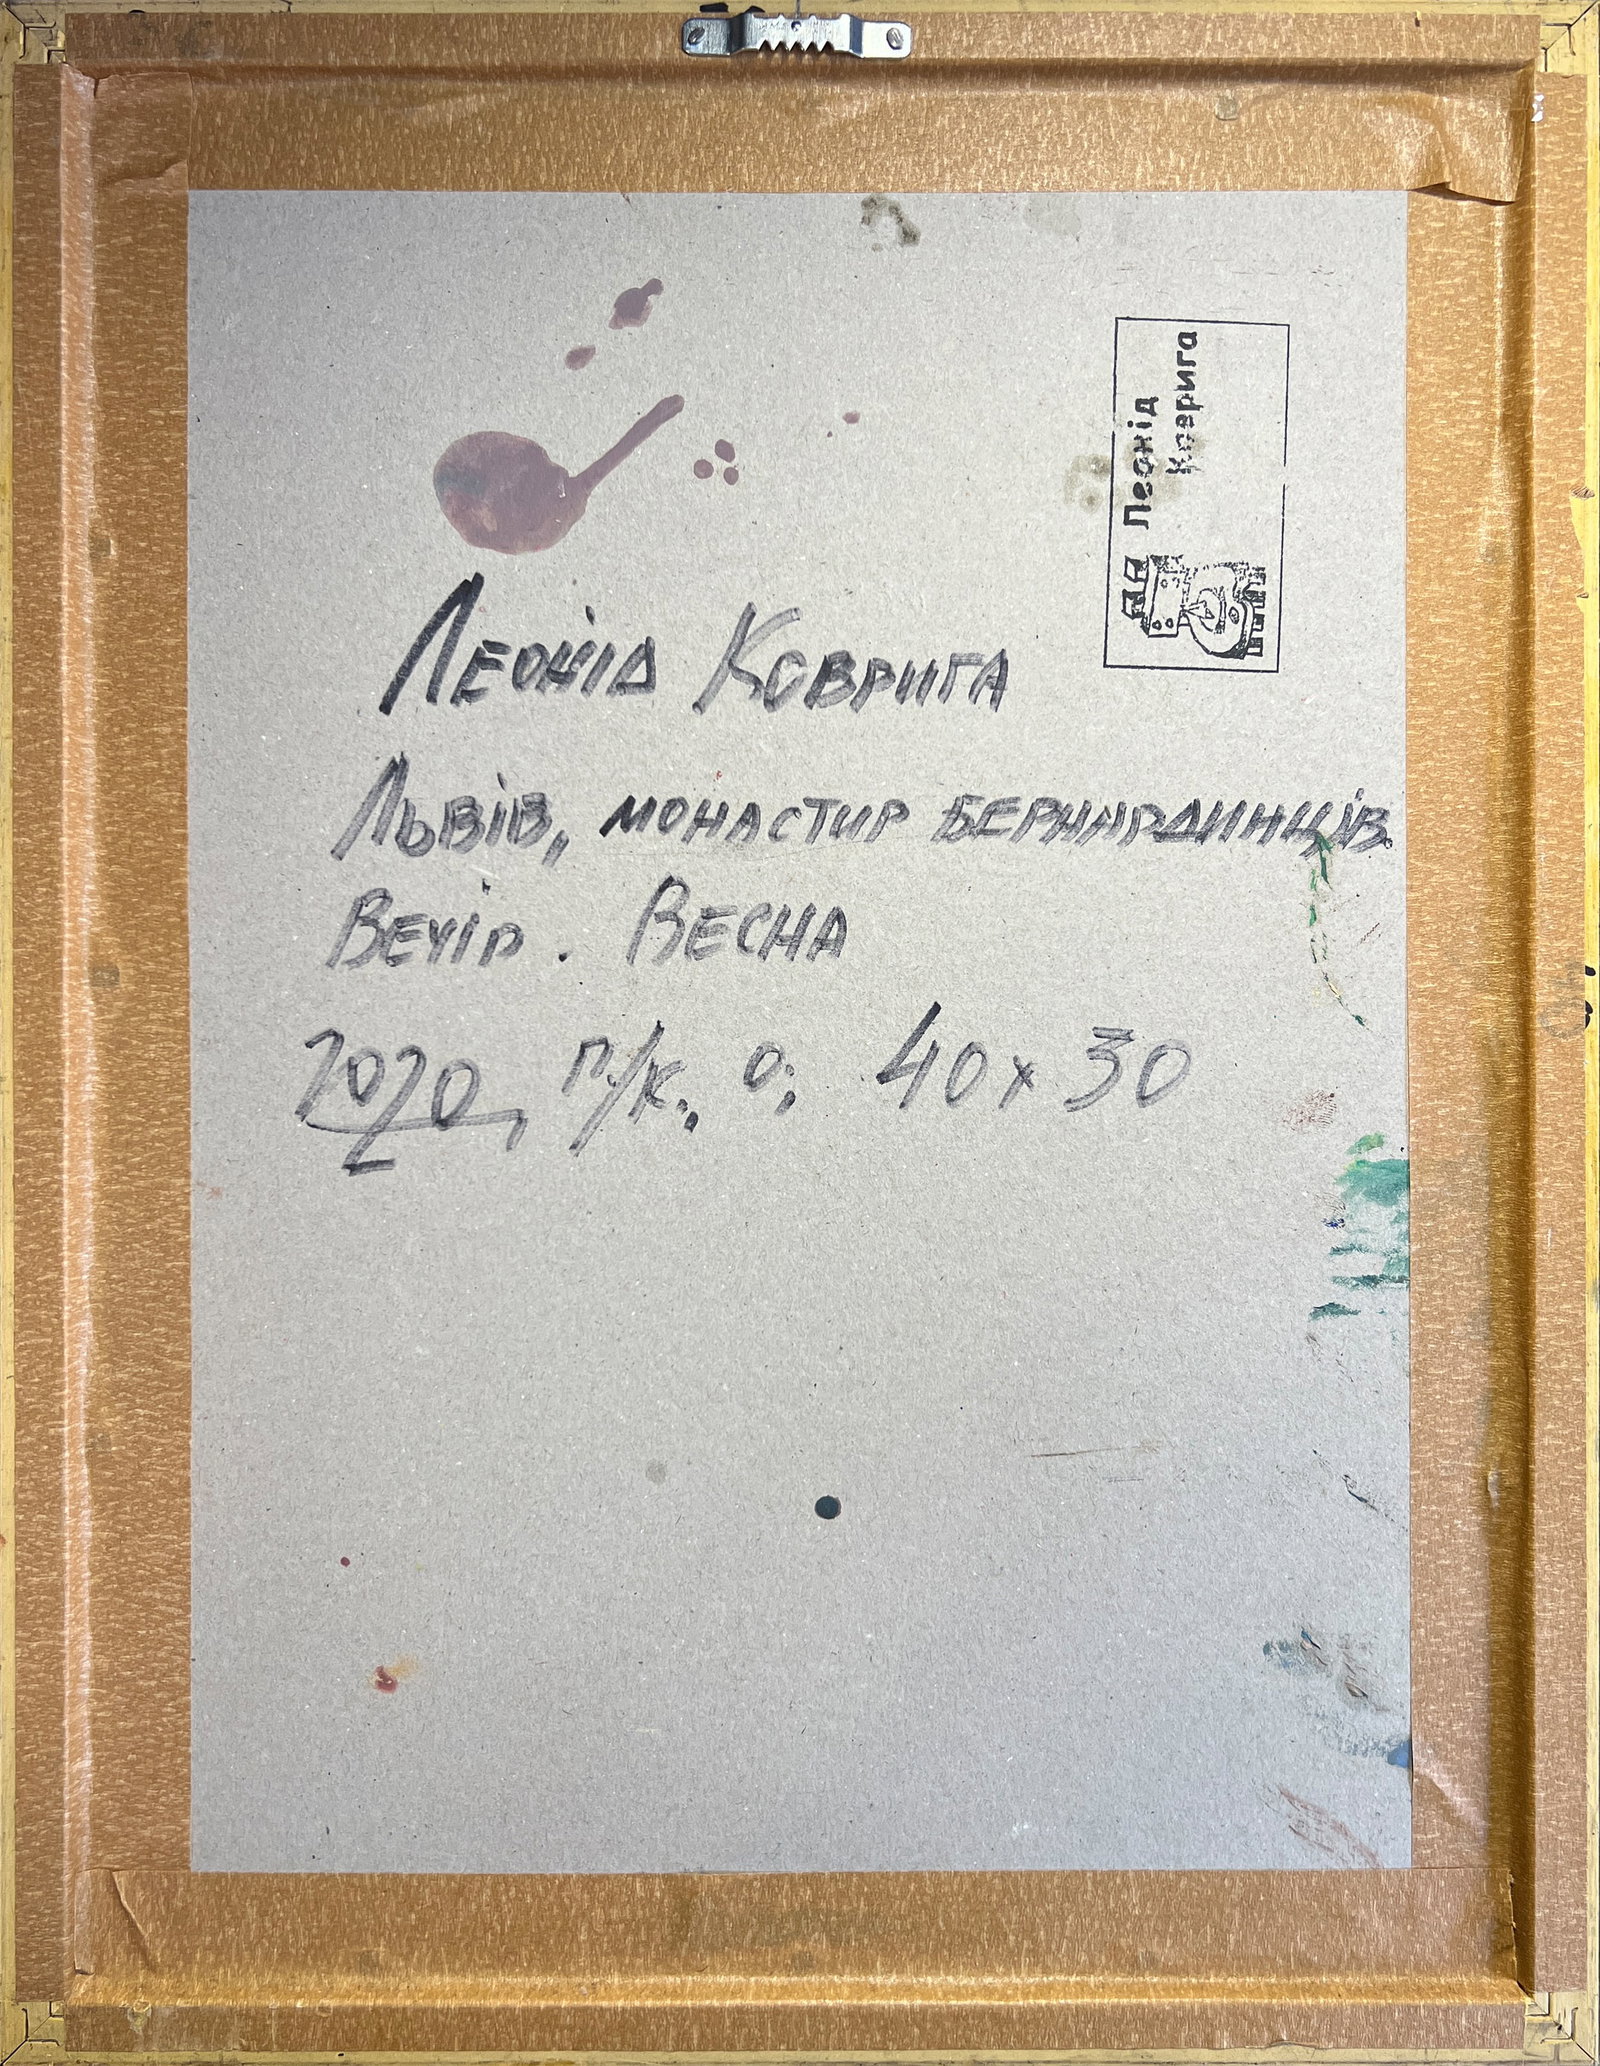 Леонід
Коврига
Леонід Коврига
Львів, монастир бернардинців.
Вечір. Весна
2020, п/к., о; 40 x 30